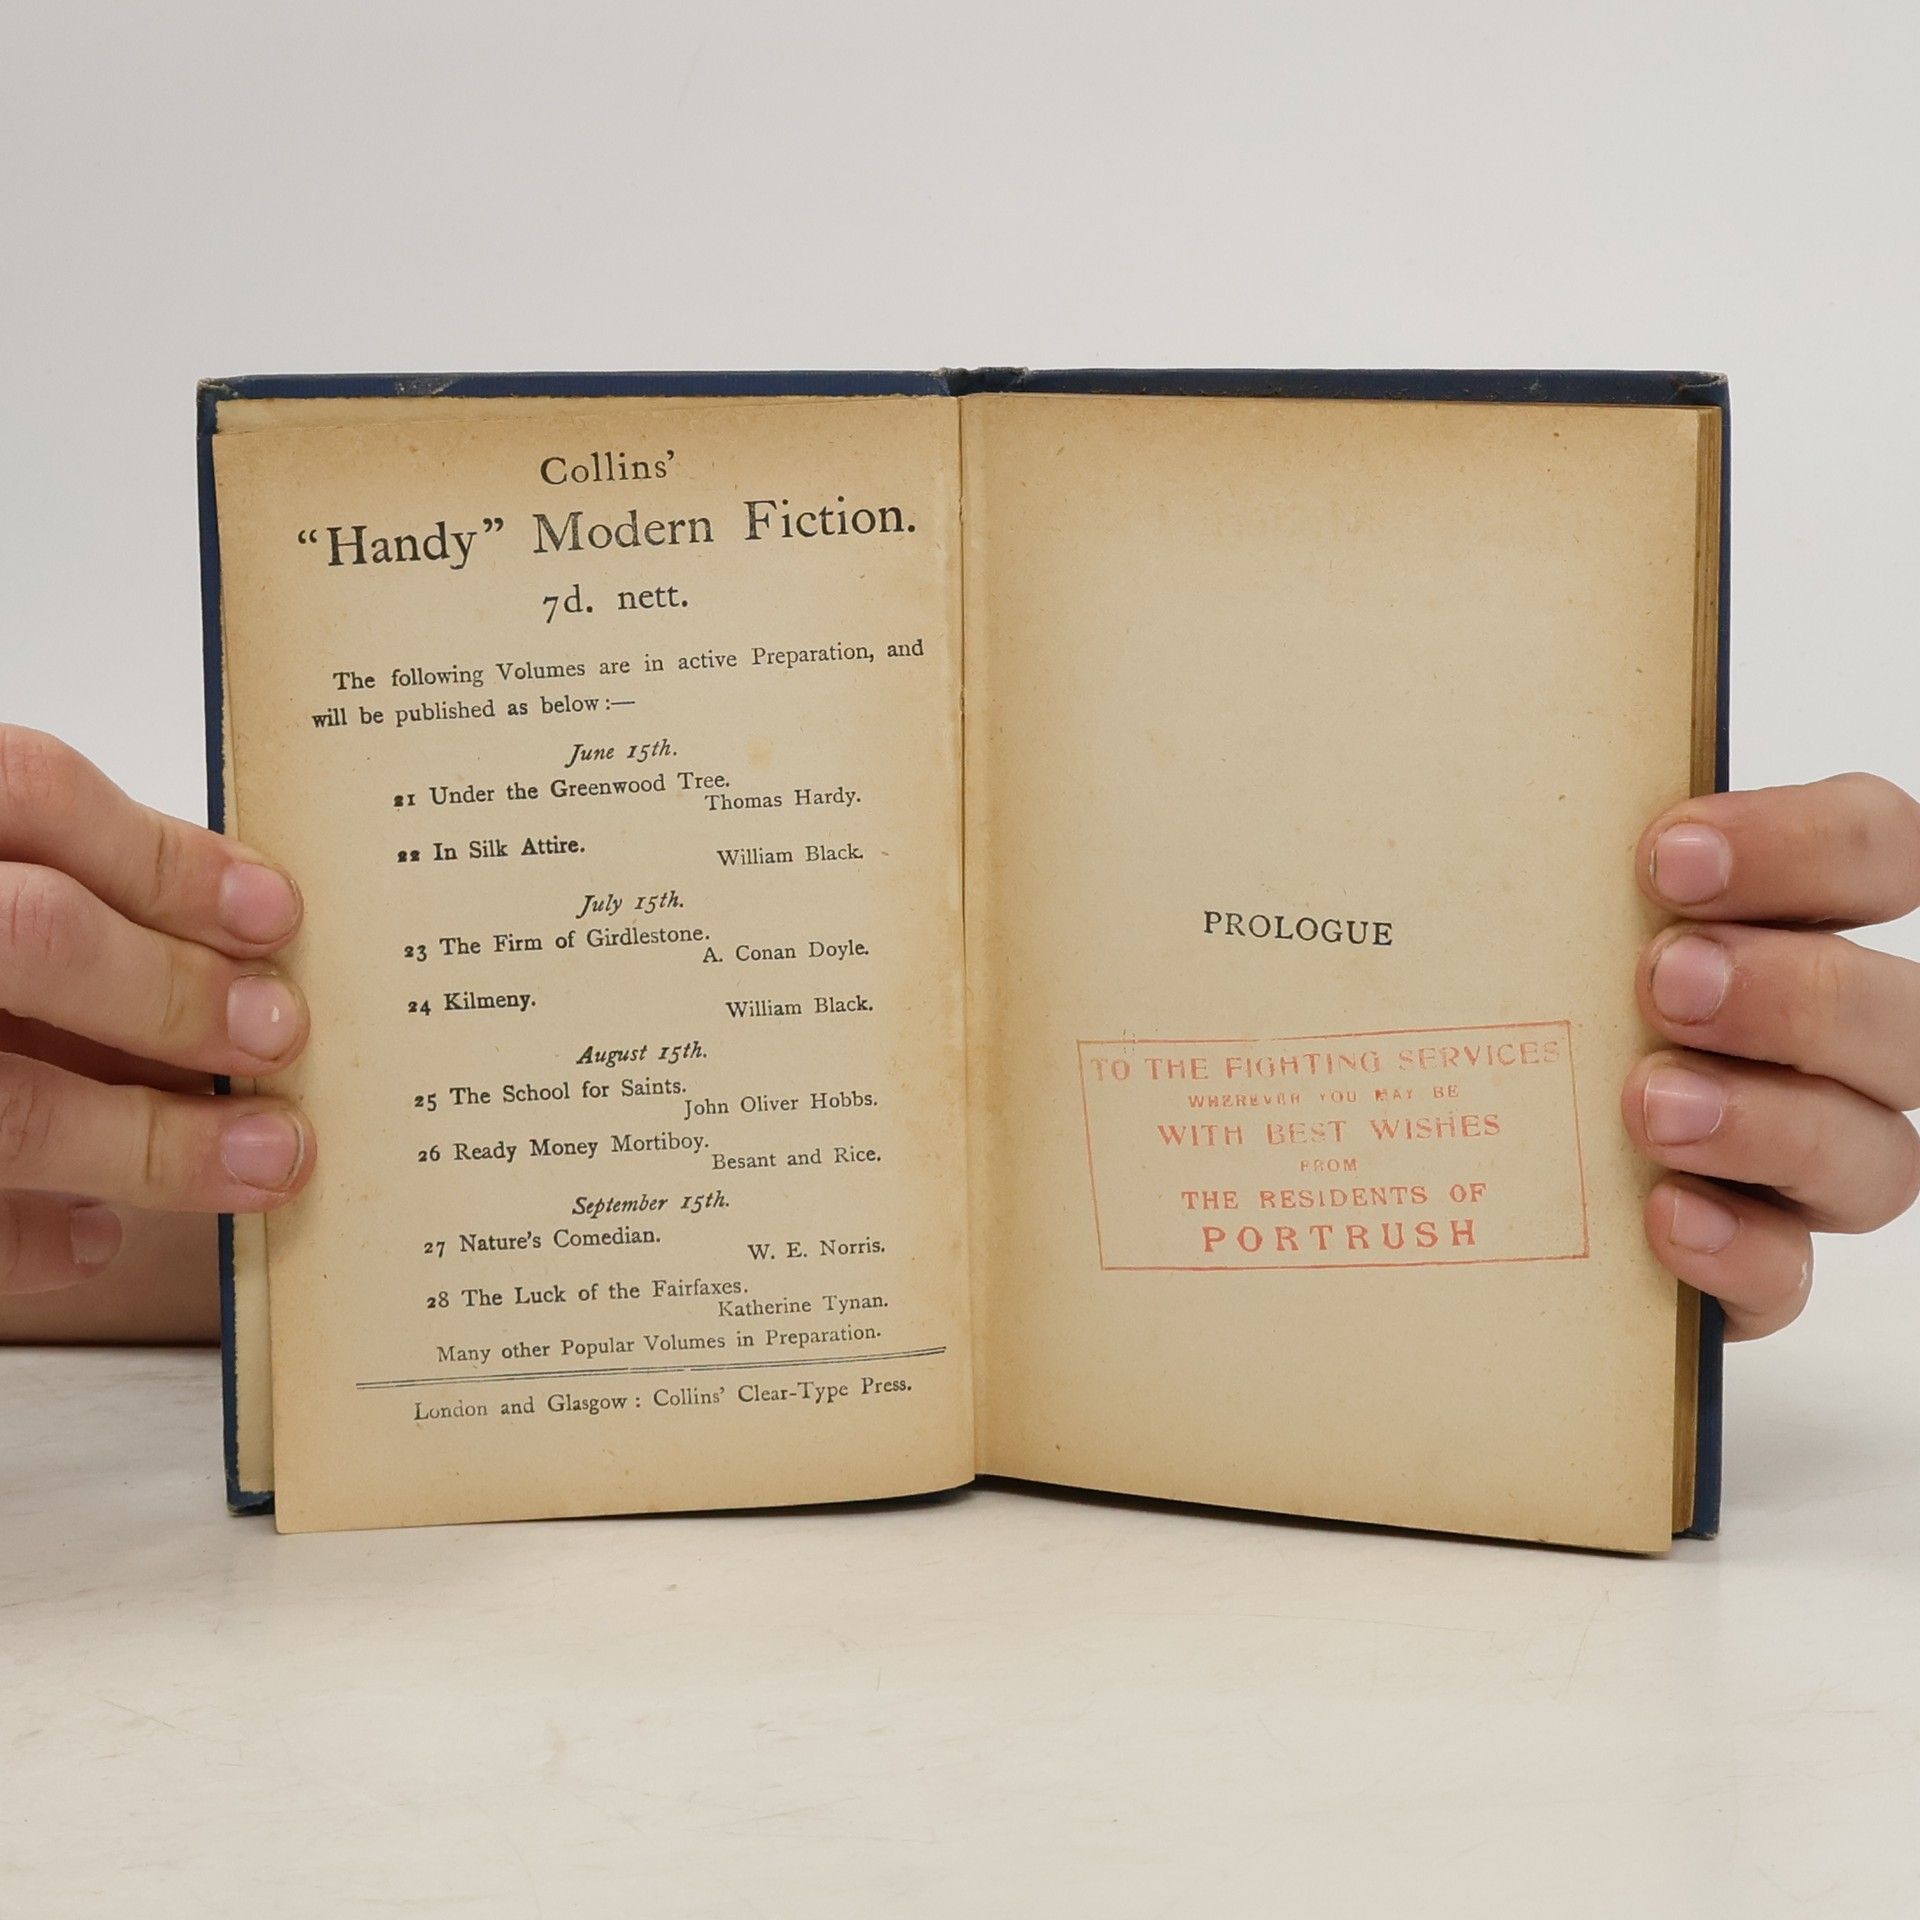 Collins’
“Handy” Modern Fiction.
7d. nett.
The following Volumes are in active Preparation, and
will be published as below :—
June 15th.
21 Under the Greenwood Tree.
Thomas Hardy.
22 In Silk Attire.
William Black.
July 15th.
23 The Firm of Girdlestone.
A. Conan Doyle.
24 Kilmeny.
William Black.
August 15th.
25 The School for Saints.
John Oliver Hobbs.
26 Ready Money Mortiboy.
Besant and Rice.
September 15th.
27 Nature's Comedian.
W. E. Norris.
28 The Luck of the Fairfaxes.
Katherine Tynan.
Many other Popular Volumes in Preparation.
London and Glasgow : Collins’ Clear-Type Press.
PROLOGUE
TO THE FIGHTING SERVICES
WHEREVER YOU MAY BE
WITH BEST WISHES
FROM
THE RESIDENTS OF
PORTRUSH